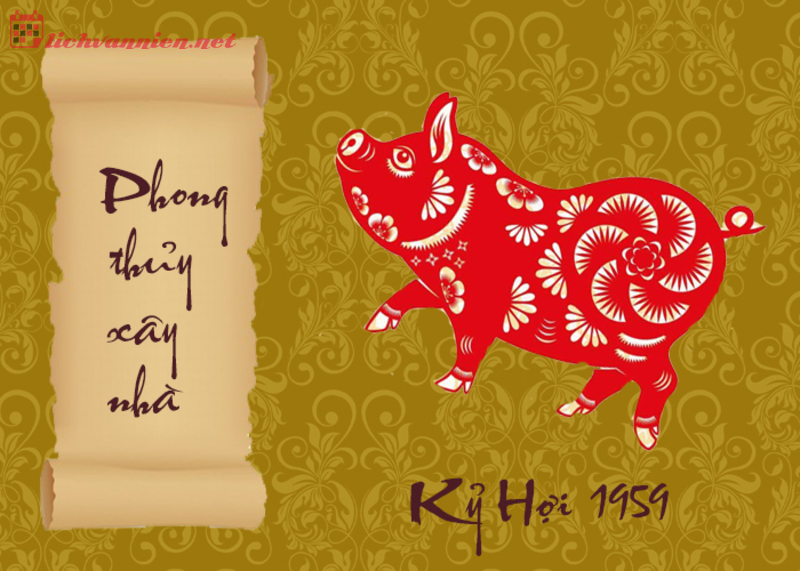 lichvannien.net
Phong
thủy
xây
nhà
Kỷ Hợi 1959